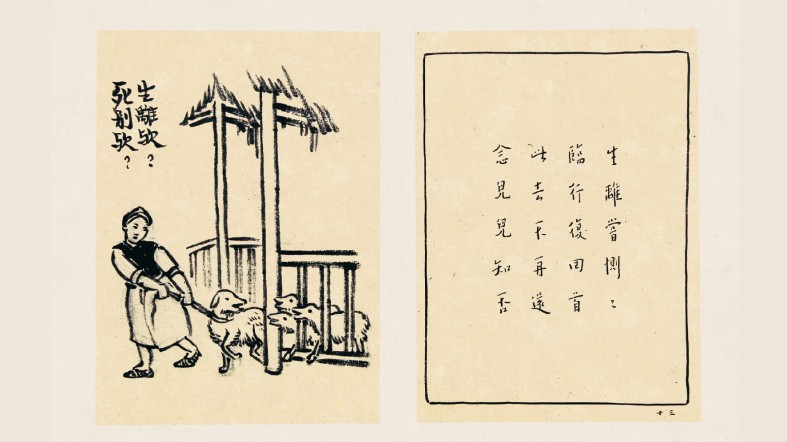 生離歟?
死別歟?
生離嘗惻〻
臨行復回首
此去不再還
念兒兒知否
十三